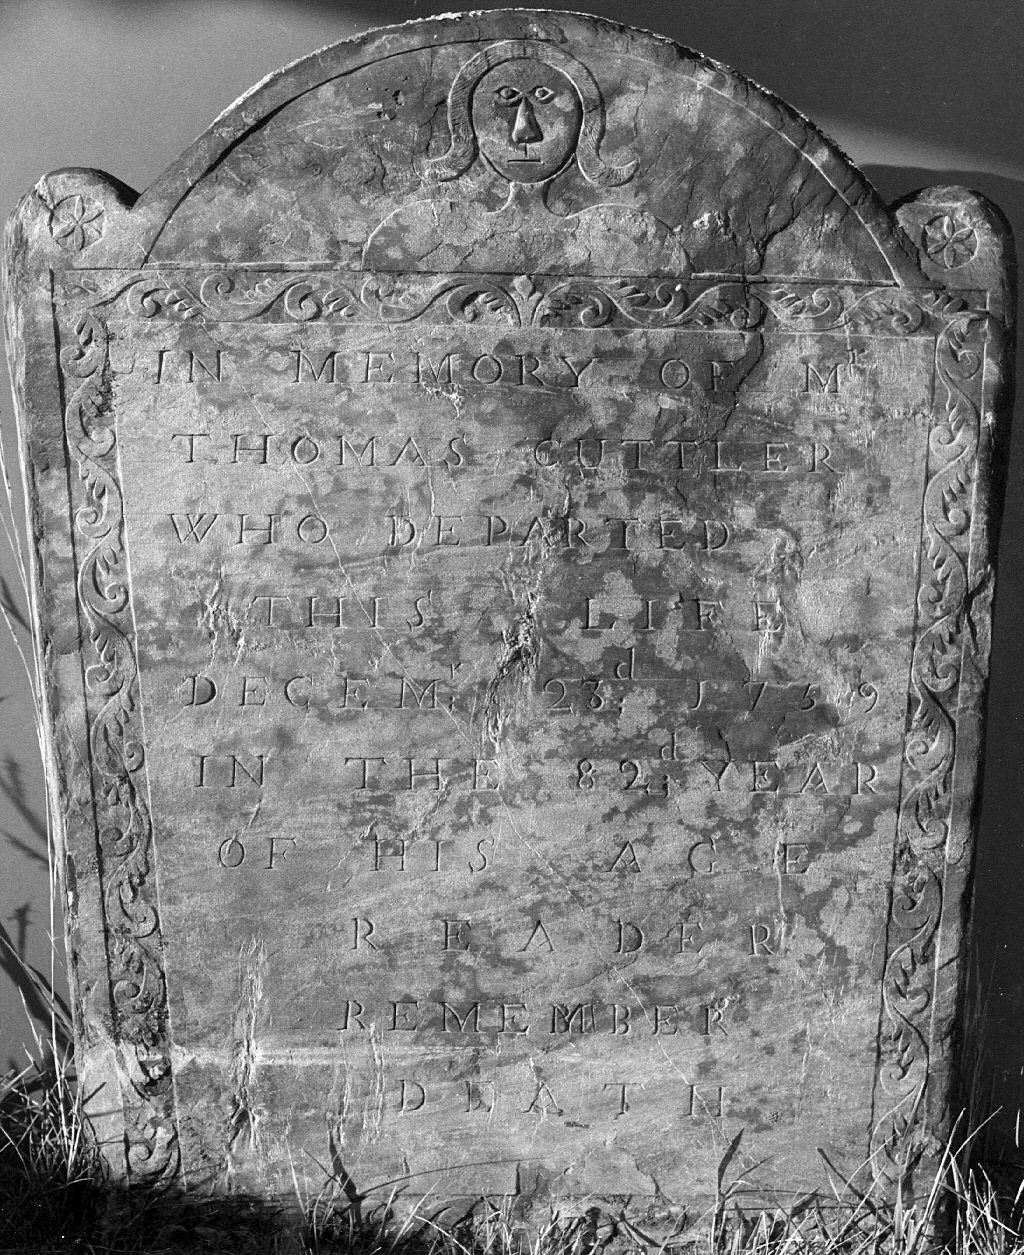 IN MEMORY OF Mr
THOMAS CUTTLER
WHO DEPARTED
THIS LIFE
DECEMr 23d 1759
IN THE 82d YEAR
OF HIS AGE
READER
REMEMBER
DEATH